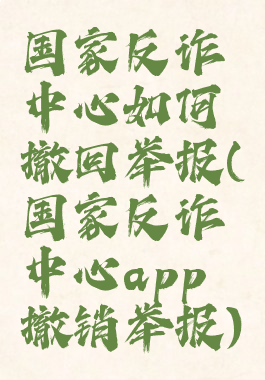 国家反诈
中心如何
撤回举报(
国家反诈
中心app
撤销举报)